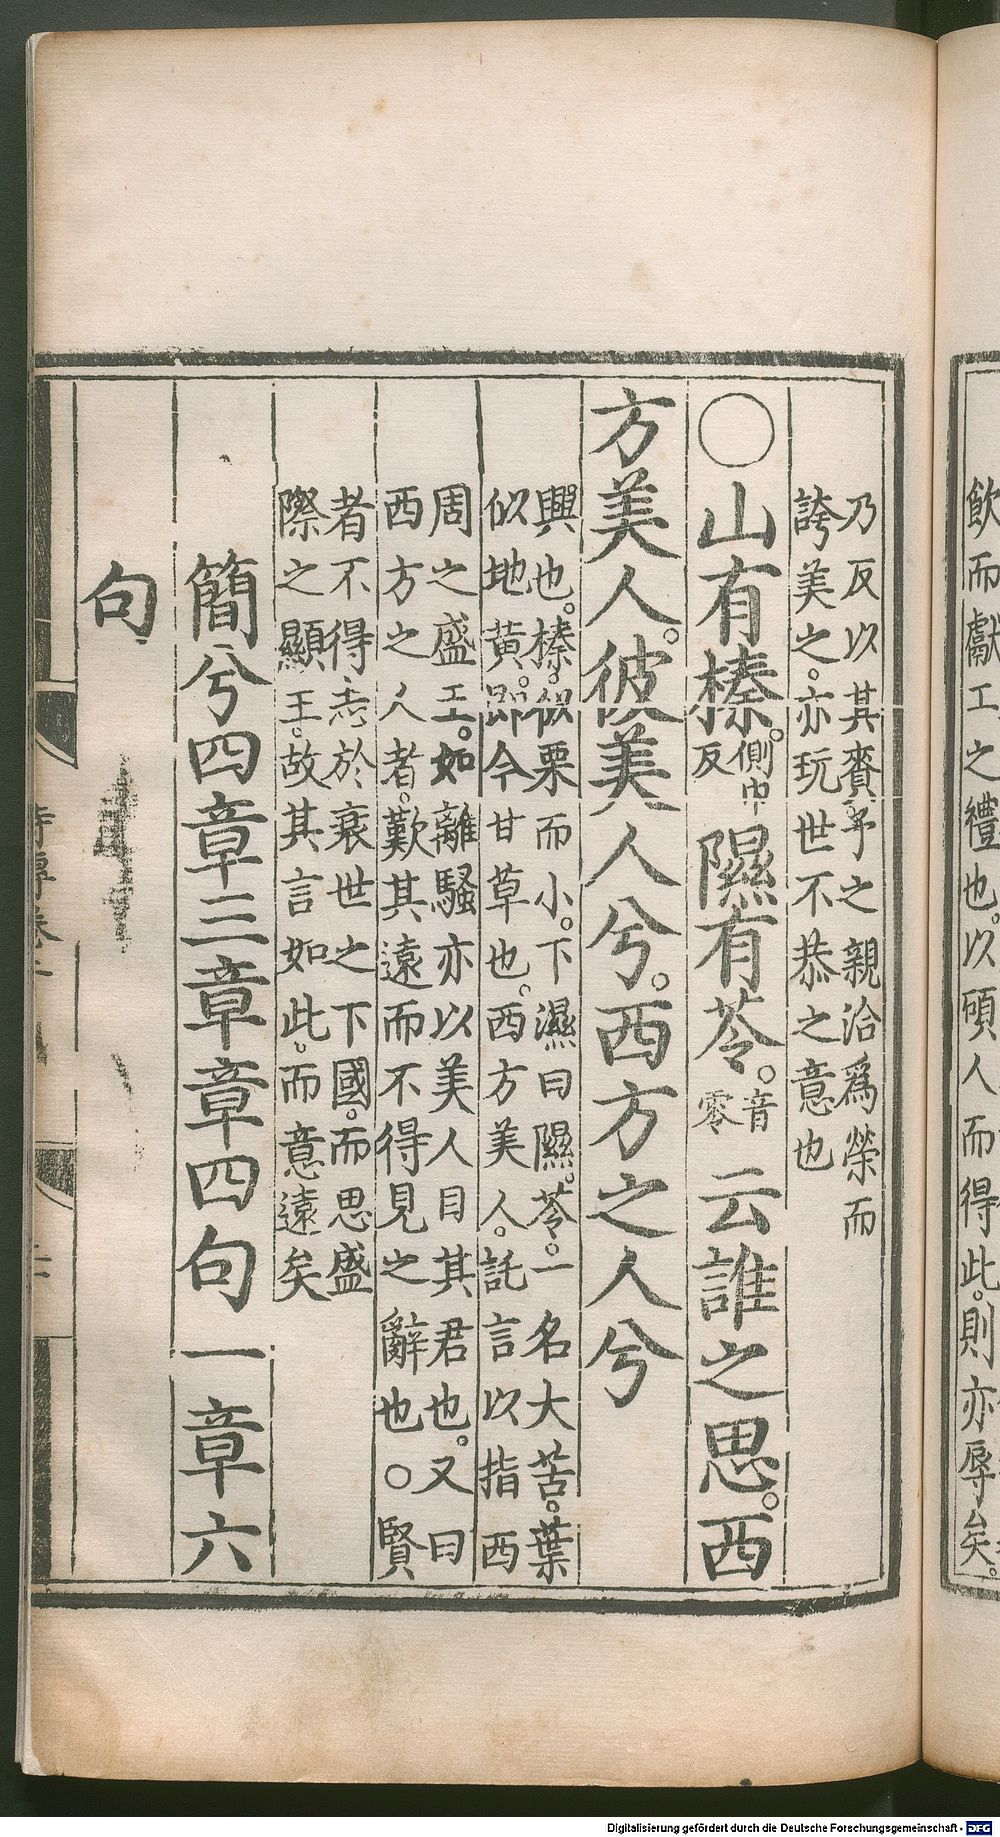 飲而獻工之禮也。以碩人而得此。則亦辱矣。
乃反以其賚予之親洽爲榮而
誇美之。亦玩世不恭之意也
○山有榛。側巾反隰有苓。音零云誰之思。西
方美人。彼美人兮。西方之人兮
興也。榛。似栗而小。下濕曰隰。苓。一名大苦。葉
似地黄。即今甘草也。西方美人。託言以指西
周之盛王。如離騷亦以美人目其君也。又曰
西方之人者。歎其遠而不得見之辭也。○賢
者不得志於衰世之下國。而思盛
際之顯王。故其言如此。而意遠矣
簡兮四章三章章四句一章六
句
Digitalisierung gefördert durch die Deutsche Forschungsgemeinschaft - DFG